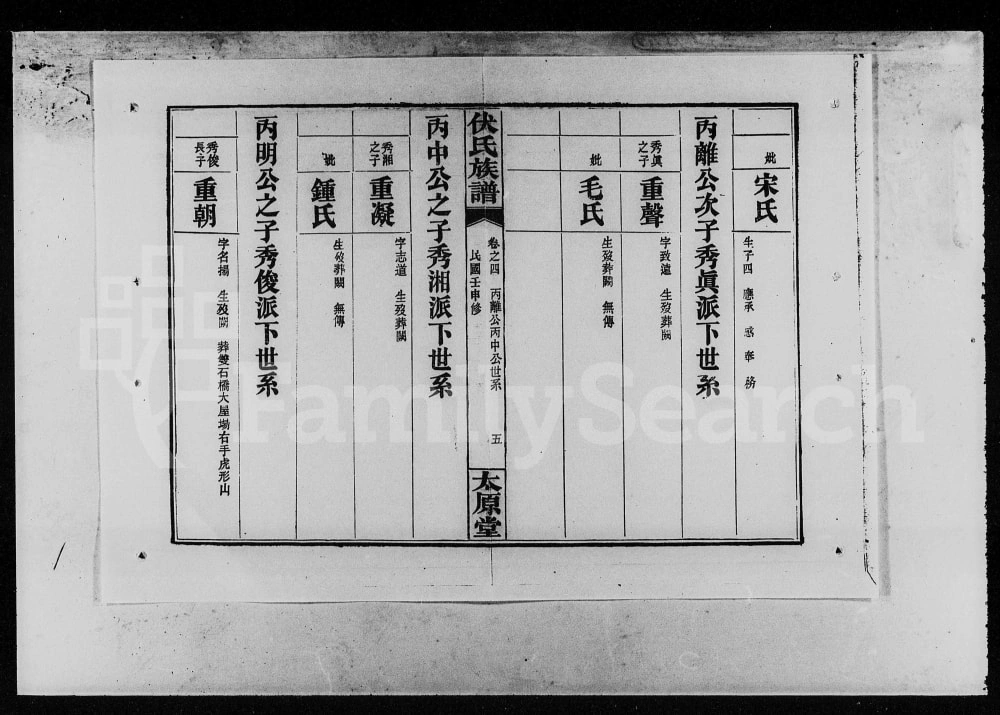 妣
宋氏
生子四 應承 惑 奉 務
丙離公次子秀眞派下世系
秀眞
之子
重聲
字致遠 生歿葬闕
妣
毛氏
生歿葬闕 無傳
伏氏族譜
卷之四 丙離公丙中公世系 五
民國壬申修
太原堂
丙中公之子秀湘派下世系
秀湘
之子
重凝
字志道 生歿葬闕
妣
鍾氏
生歿葬闕 無傳
丙明公之子秀俊派下世系
秀俊
長子
重朝
字名揚 生歿闕 葬雙石橋大屋場右手虎形山
FamilySearch